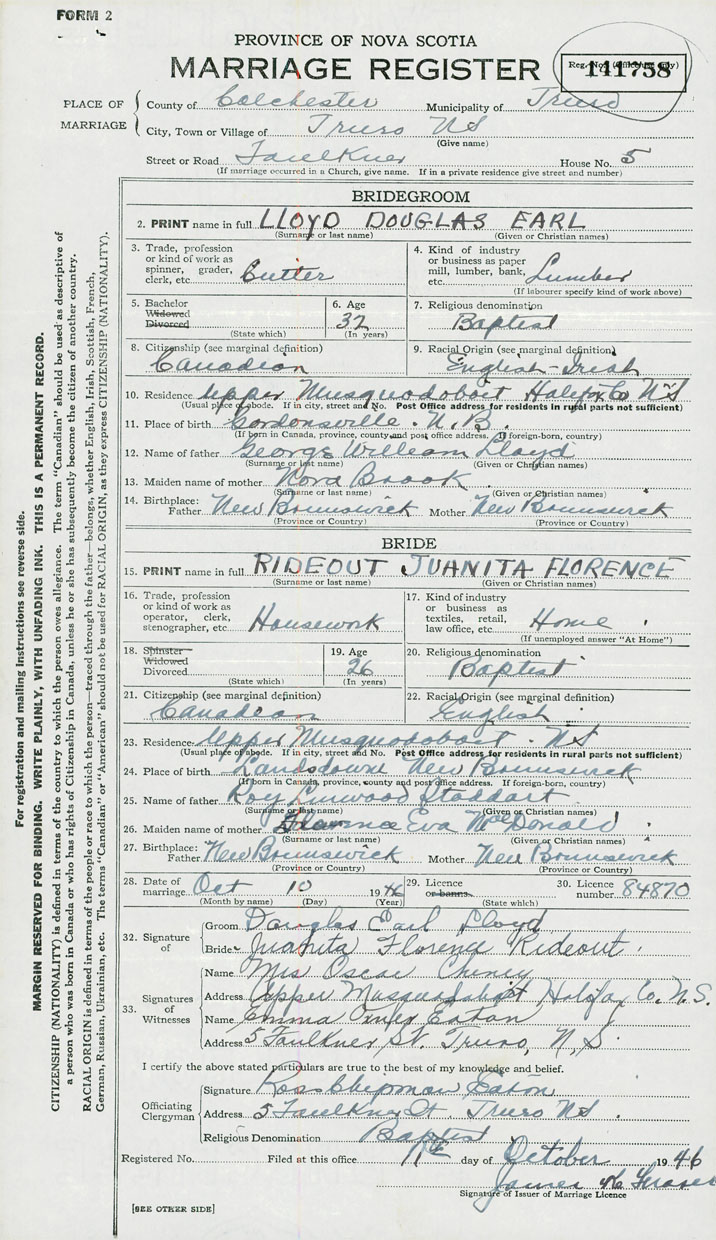 FORM 2
PROVINCE OF NOVA SCOTIA
MARRIAGE REGISTER
Reg. No. (Office use only)
141758
PLACE OF MARRIAGE
County of Colchester Municipality of Truro
City, Town or Village of Truro NS
(Give name)
Street or Road Faulkner House No. 5
(If marriage occurred in a Church, give name. If in a private residence give street and number)
BRIDEGROOM
2. PRINT name in full LLOYD DOUGLAS EARL
(Surname or last name) (Given or Christian names)
3. Trade, profession or kind of work as spinner, grader, clerk, etc. Cutter
4. Kind of industry or business as paper mill, lumber, bank, etc. Lumber
(If labourer specify kind of work above)
5. Bachelor Widowed Divorced
(State which)
6. Age 32
(In years)
7. Religious denomination
Baptist
8. Citizenship (see marginal definition)
Canadian
9. Racial Origin (see marginal definition)
English-Irish
10. Residence Upper Musquodoboit Halifax Co NS
(Usual place of abode. If in city, street and No. Post Office address for residents in rural parts not sufficient)
11. Place of birth Gordonsville. N.B.
(If born in Canada, province, county and post office address. If foreign-born, country)
12. Name of father George William Lloyd
(Surname or last name) (Given or Christian names)
13. Maiden name of mother Nora Brook
(Surname or last name) (Given or Christian names)
14. Birthplace: Father New Brunswick Mother New Brunswick
(Province or Country) (Province or Country)
BRIDE
15. PRINT name in full RIDEOUT JUANITA FLORENCE
(Surname or last name) (Given or Christian names)
16. Trade, profession or kind of work as operator, clerk, stenographer, etc. Housework
17. Kind of industry or business as textiles, retail, law office, etc. Home
(If unemployed answer "At Home")
18. Spinster Widowed Divorced
(State which)
19. Age 26
(In years)
20. Religious denomination
Baptist
21. Citizenship (see marginal definition)
Canadian
22. Racial Origin (see marginal definition)
English
23. Residence Upper Musquodoboit. NS
(Usual place of abode. If in city, street and No. Post Office address for residents in rural parts not sufficient)
24. Place of birth New Brunswick
(If born in Canada, province, county and post office address. If foreign-born, country)
25. Name of father Roy Stoddart
(Surname or last name) (Given or Christian names)
26. Maiden name of mother Florence Eva McDonald
(Surname or last name) (Given or Christian names)
27. Birthplace: Father New Brunswick Mother New Brunswick
(Province or Country) (Province or Country)
28. Date of marriage Oct 10 1946
(Month by name) (Day) (Year)
29. Licence or banns.
(State which)
30. Licence number 84870
32. Signature of
Groom Douglas Earl Lloyd
Bride Juanita Florence Rideout
33. Signatures of Witnesses
Name Mrs Oscar Cheney
Address Upper Musquodoboit Halifax Co. N.S.
Name Emma Eaton
Address 5 Faulkner St. Truro, N,S.
I certify the above stated particulars are true to the best of my knowledge and belief.
Officiating Clergyman
Signature Ross Chipman Eaton
Address 5 Faulkner St Truro NS
Religious Denomination Baptist
Registered No. Filed at this office day of October 1946
James Fraser
Signature of Issuer of Marriage Licence
[SEE OTHER SIDE]
For registration and mailing instructions see reverse side.
MARGIN RESERVED FOR BINDING. WRITE PLAINLY, WITH UNFADING INK. THIS IS A PERMANENT RECORD.
CITIZENSHIP (NATIONALITY) is defined in terms of the country to which the person owes allegiance. The term "Canadian" should be used as descriptive of
a person who was born in Canada or who has rights of Citizenship in Canada, unless he or she has subsequently become the citizen of another country.
RACIAL ORIGIN is defined in terms of the people or race to which the person—traced through the father—belongs, whether English, Irish, Scottish, French,
German, Russian, Ukrainian, etc. The terms "Canadian" or "American" should not be used for RACIAL ORIGIN, as they express CITIZENSHIP (NATIONALITY).